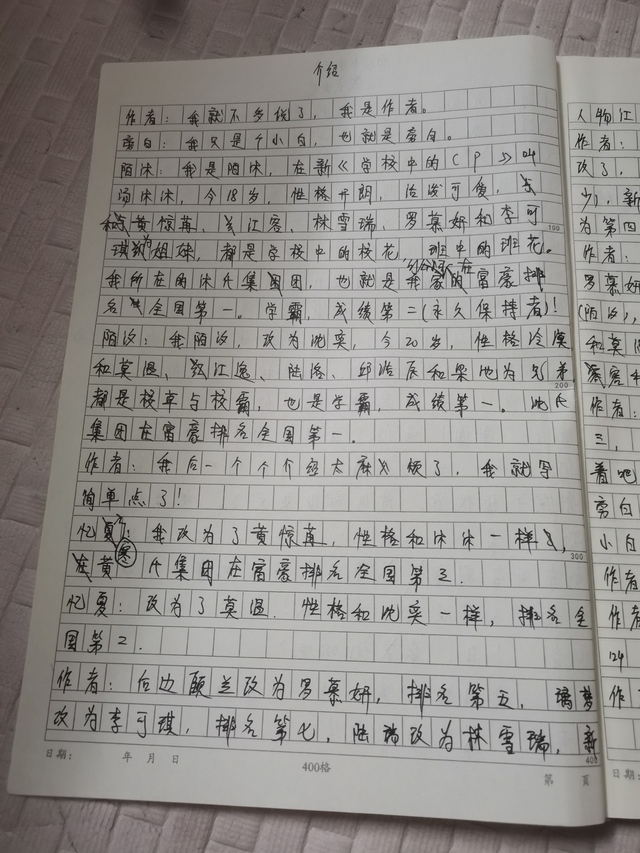 介绍
作者：我就不多说了，我是作者。
旁白：我只是个小白，也就是旁白。
陌沐：我是陌沐，在新《学校中的CP》叫
汤沐沐，今18岁，性格开朗，治愈可爱，
和黄惊苒、江客、林雪瑞、罗慕妍和李可
琪为姐妹，都是学校中的校花，班中的班花。
我所在的沐氏集团，也就是我家的富豪排
名全国第一。学霸，成绩第二(永久保持者)！
陌汐：我陌汐，改为沈奕，今20岁，性格冷漠
和莫温、江逸、陆洛、邱浩辰和梁他为兄弟，
都是校草与校霸，也是学霸，成绩第一。沈氏
集团在富豪排名全国第一。
作者：我后一个个介绍太麻烦了，我就写
简单点了！
忆寒：我改为了黄惊苒，性格和沐沐一样，
在黄氏集团在富豪排名全国第三．
忆夏：改为了莫温．性格和沈奕一样，排名全
国第2．
作者：后边颜兰改为罗慕妍，排名第五，璃梦
改为李可琪，排名第七，陆瑞改为林雪瑞，新
日期： 年 月 日
400格
第 頁
100
200
300
400
人物江
作者：
改了，
少)，新
为第四
作者：
罗慕妍
(陌汐)，
和莫
客和
作者：
三，
着吧
旁白
小白
作者
作者
124
作